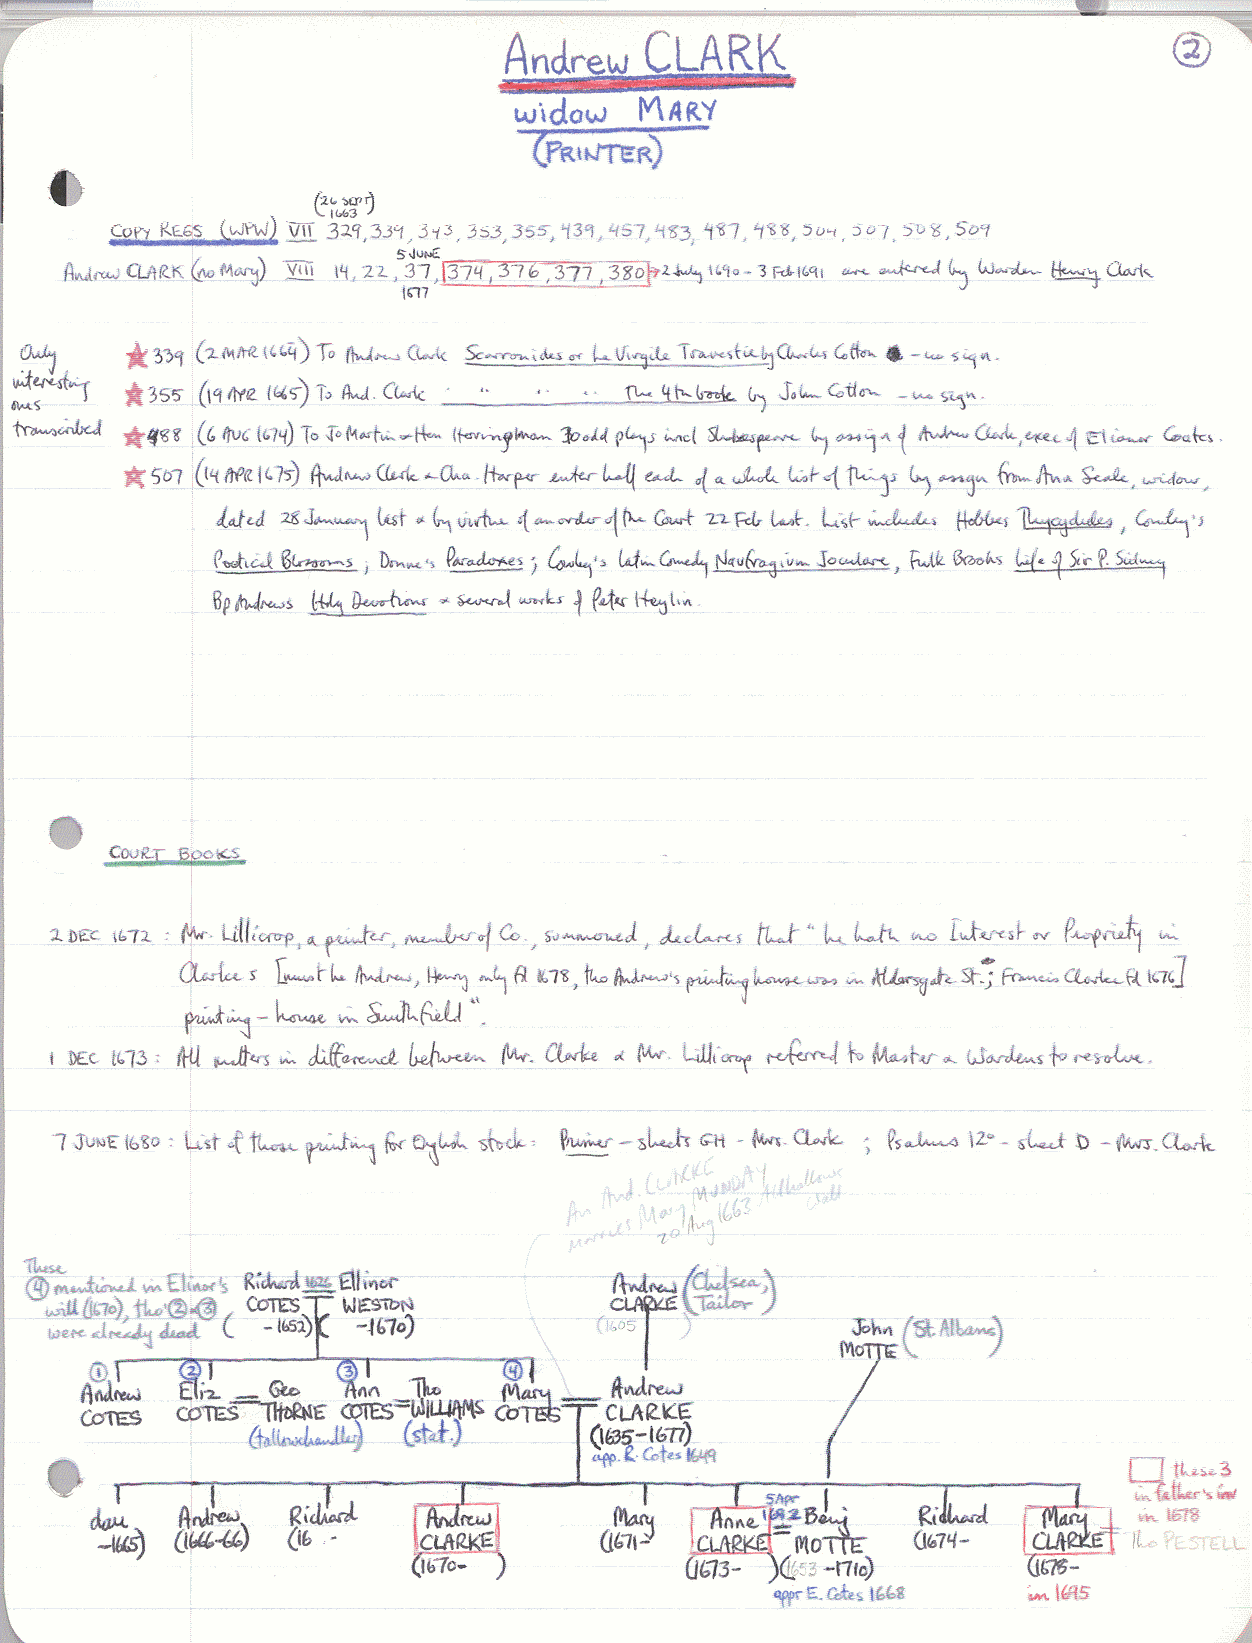 Andrew CLARK
②
widow MARY
(PRINTER)
(26 SEPT)
1663
COPY REGS (WPW) VII 329, 339, 343, 353, 355, 439, 457, 483, 487, 488, 504, 507, 508, 509
5 JUNE
Andrew CLARK (no Mary) VIII 14, 22, 37, 374, 376, 377, 380 → 2 July 1690 - 3 Feb 1691 are entered by Warden Henry Clark
1677
Only
interesting
ones
transcribed
★ 339 (2 MAR 1664) To Andrew Clark Scarronides or Le Virgile Travestie by Charles Cotton - no sign.
★ 355 (19 APR 1665) To And. Clark " " " The 4th book by John Cotton - no sign.
★ 488 (6 AUG 1674) To Jo Martin & Hen Herringman 30 odd plays incl Shakespeare by assign of Andrew Clark, exec of Ellianor Coates.
★ 507 (14 APR 1675) Andrew Clerk & Cha. Harper enter half each of a whole list of things by assign from Ann Seale, widow,
dated 28 January last & by virtue of an order of the Court 22 Feb last. List includes Hobbes Thycydides, Cowley's
Poetical Blossoms; Donne's Paradoxes; Cowley's Latin Comedy Naufragium Joculare, Fulk Brooks Life of Sir P. Sidney
Bp Andrews Holy Devotions & several works of Peter Heylin.
COURT BOOKS
2 DEC 1672 : Mr. Lillicrop, a printer, member of Co., summoned, declares that "he hath no Interest or Propriety in
Clarke's [must be Andrew, Henry only fd 1678, tho Andrew's printing house was in Aldersgate St.; Francis Clarke fd 1676]
printing-house in Smithfield".
1 DEC 1673 : All matters in difference between Mr. Clarke & Mr. Lillicrop referred to Master & Wardens to resolve.
7 JUNE 1680 : List of those printing for English stock: Primer - sheets GH - Mrs. Clark ; Psalms 12º - sheet D - Mrs. Clark
An And. CLARKE
marries Mary MUNDAY Allhallows
20 Aug 1663 Wall
These
④ mentioned in Elinor's
will (1670), tho' ② & ③
were already dead
Richard 1626 Ellinor
COTES WESTON
( -1652) ( -1670)
Andrew (Chelsea,
CLARKE Tailor)
(1605 )
John (St. Albans)
MOTTE
① ② ③ ④
Andrew Eliz = Geo Ann Tho Mary = Andrew
COTES COTES THORNE COTES = WILLIAMS COTES CLARKE
(tallowchandler) (stat.) (1635-1677)
app. R. Cotes 1649
these 3
in father's
in 1678
5 Apr
dau Andrew Richard Andrew Mary Anne 1692 Benj Richard Mary
-1665) (1666-66) (16 . - CLARKE (1671- CLARKE = MOTTE (1674- CLARKE = Tho PESTELL
(1670- ) (1673- ) (1653-1710) (1678-
appr E. Cotes 1668 in 1695